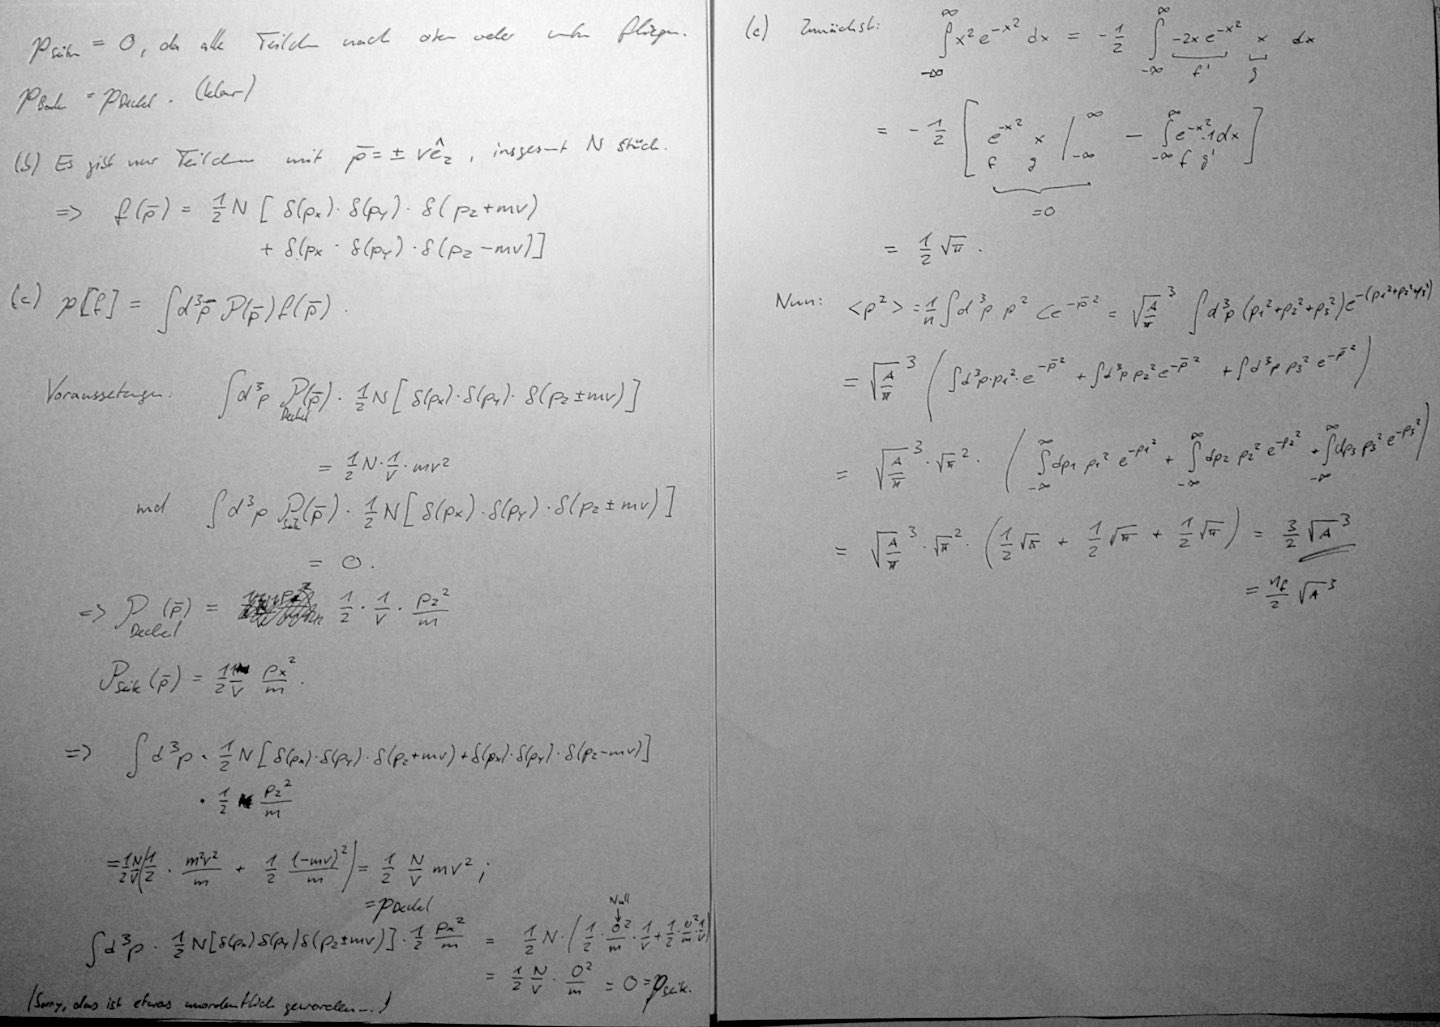 p_Seiten = 0, da alle Teilchen nach oben oder unten fliegen.
p_Boden = p_Deckel. (klar)
(b) Es gibt nur Teilchen mit p̄ = ± v ê_z, insgesamt N Stück.
=> f(p̄) = 1/2 N [ δ(p_x)·δ(p_y)·δ(p_z+mv)
+ δ(p_x · δ(p_y)·δ(p_z−mv)]
(c) p[f] = ∫d³p̄ P(p̄) f(p̄).
Voraussetzungen: ∫d³p P_Deckel(p̄) · 1/2 N [ δ(p_x)·δ(p_y)·δ(p_z ± mv) ]
= 1/2 N · 1/V · mv²
und ∫d³p P_Seite(p̄) · 1/2 N [ δ(p_x)·δ(p_y)·δ(p_z ± mv) ]
= 0.
=> P_Deckel(p̄) = 1/2 · 1/V · p_z²/m
P_Seite(p̄) = 1/2 1/V p_x²/m.
=> ∫d³p · 1/2 N [ δ(p_x)·δ(p_y)·δ(p_z+mv) + δ(p_x)·δ(p_y)·δ(p_z−mv) ]
· 1/2 p_z²/m
= 1/2 N/V (1/2 · m²v²/m + 1/2 (−mv)²/m) = 1/2 N/V mv² ;
= p_Deckel
Null
↓
∫d³p · 1/2 N [δ(p_x)δ(p_y)δ(p_z±mv)] · 1/2 p_x²/m = 1/2 N · (1/2 · 0²/m · 1/V + 1/2 · 0²/m · 1/V)
= 1/2 N/V · 0²/m = 0 = p_Seite.
(Sorry, das ist etwas unordentlich geworden...)
(e) Zunächst: ∫_{−∞}^{∞} x² e^{−x²} dx = −1/2 ∫_{−∞}^{∞} −2x e^{−x²} x dx
f' g
= −1/2 [ e^{−x²} x |_{−∞}^{∞} − ∫_{−∞}^{∞} e^{−x²}·1 dx ]
f g f g'
=0
= 1/2 √π .
Nun: <p²> = 1/n ∫d³p p² C e^{−p̄²} = √(A/π)³ ∫d³p (p₁²+p₂²+p₃²) e^{−(p₁²+p₂²+p₃²)}
= √(A/π)³ ( ∫d³p·p₁²·e^{−p̄²} + ∫d³p p₂² e^{−p̄²} + ∫d³p p₃² e^{−p̄²} )
= √(A/π)³ · √π² · ( ∫_{−∞}^{∞} dp₁ p₁² e^{−p₁²} + ∫_{−∞}^{∞} dp₂ p₂² e^{−p₂²} + ∫_{−∞}^{∞} dp₃ p₃² e^{−p₃²} )
= √(A/π)³ · √π² · ( 1/2 √π + 1/2 √π + 1/2 √π ) = 3/2 √A³
= n_f/2 √A³